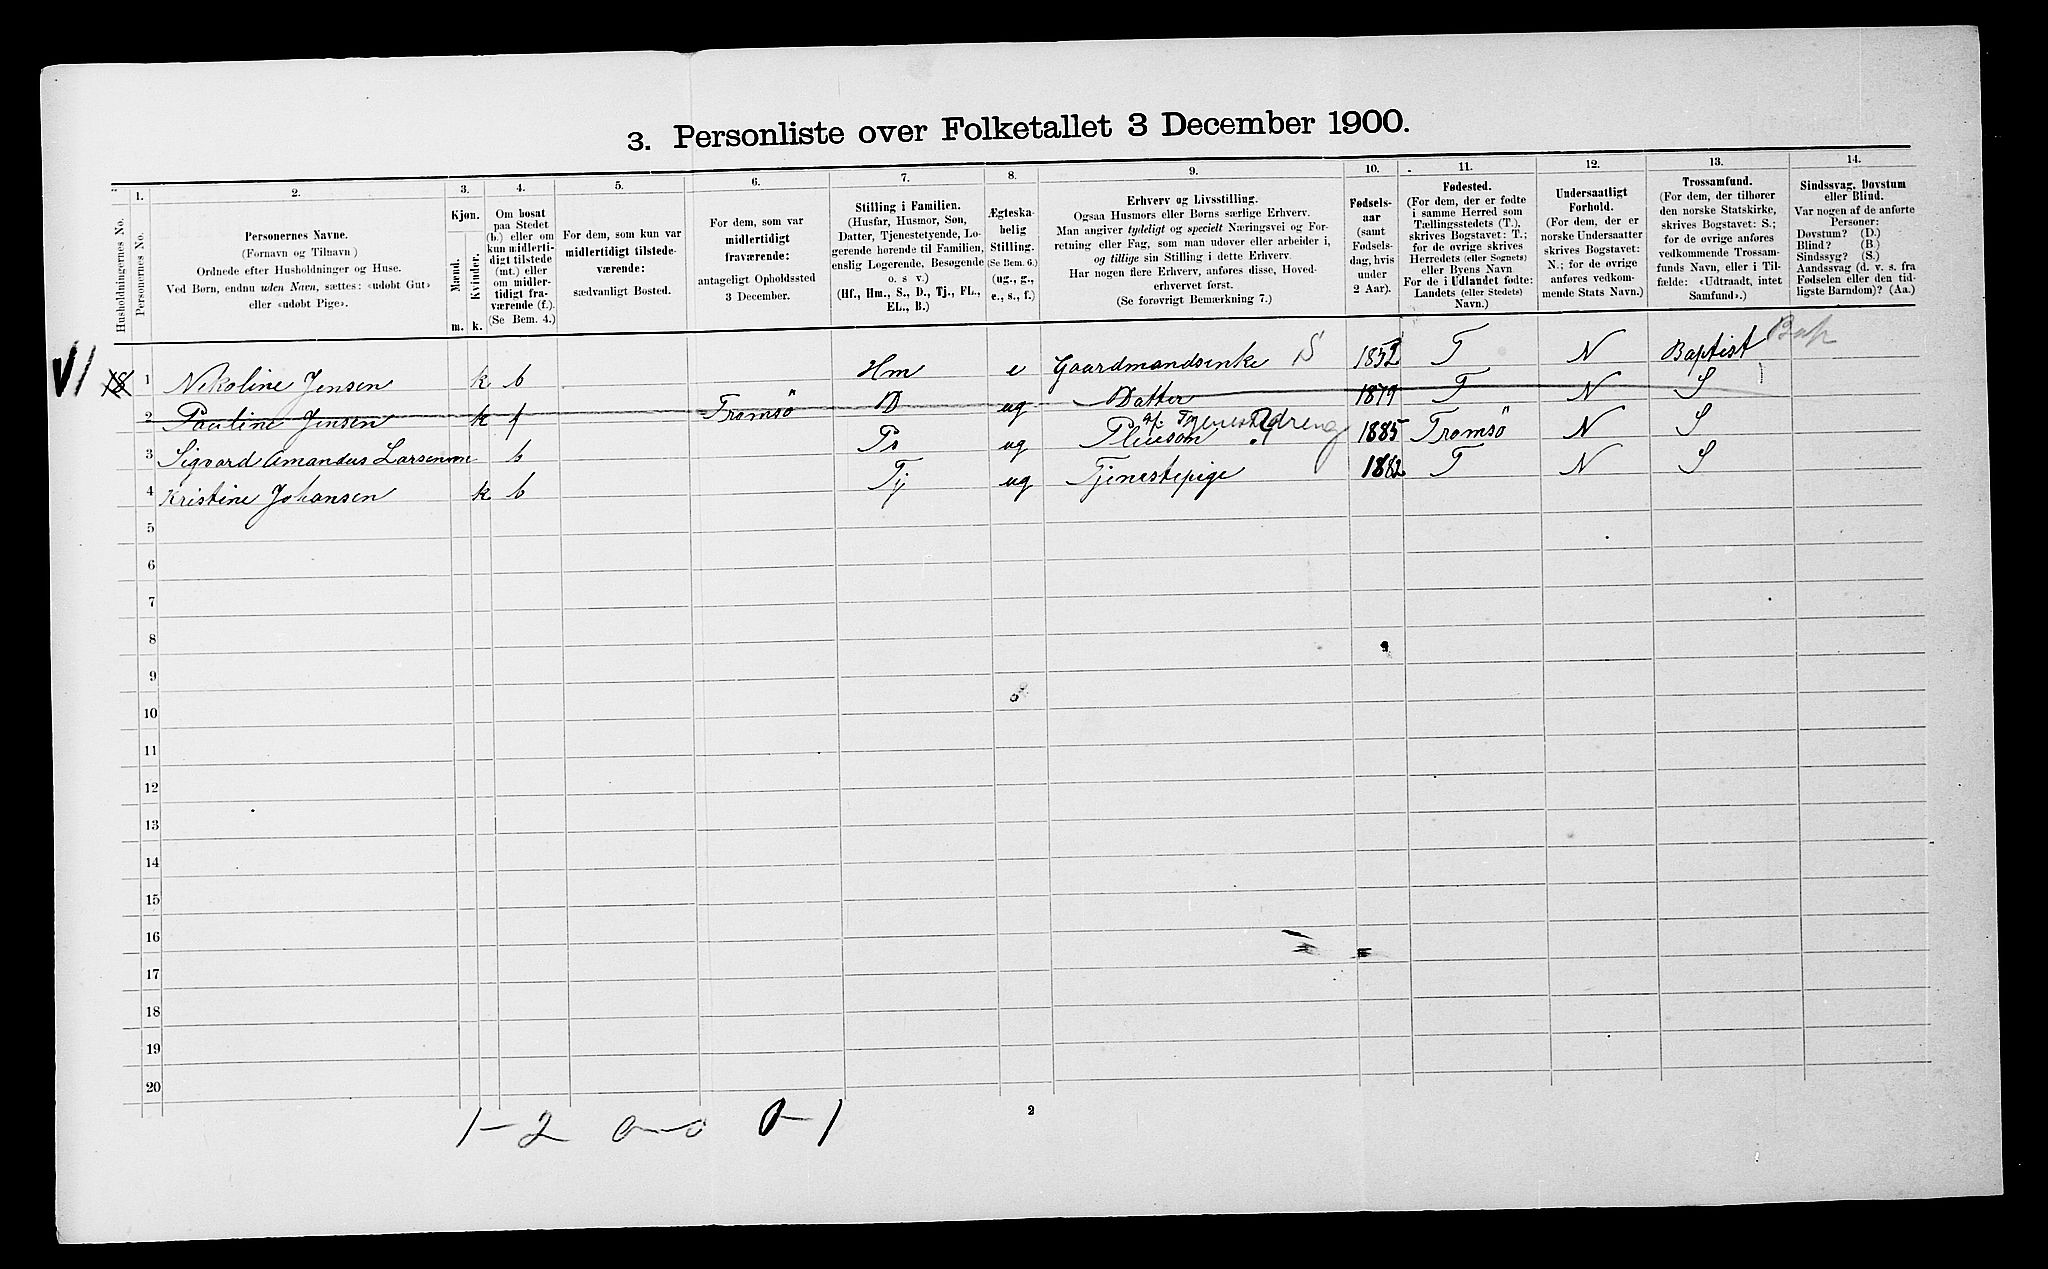 3. Personliste over Folketallet 3 December 1900.
1. 2. 3. 4. 5. 6. 7. 8. 9. 10. 11. 12. 13. 14.
Husholdningernes No.
Personernes No.
Personernes Navne.
(Fornavn og Tilnavn)
Ordnede efter Husholdninger og Huse.
Ved Børn, endnu uden Navn, sættes: «udøbt Gut»
eller «udøbt Pige».
Kjøn.
Mænd.
Kvinder.
m. k.
Om bosat
paa Stedet
(b.) eller om
kun midlerti-
digt tilstede
(mt.) eller
om midler-
tidigt fra-
værende (f.).
(Se Bem. 4.)
For dem, som kun var
midlertidigt tilstede-
værende:
sædvanligt Bosted.
For dem, som var
midlertidigt
fraværende:
antageligt Opholdssted
3 December.
Stilling i Familien.
(Husfar, Husmor, Søn,
Datter, Tjenestetyende, Lo-
gerende hørende til Familien,
enslig Logerende, Besøgende
o. s v.)
(Hf., Hm., S., D., Tj., FL.,
EL., B.)
Ægteska-
belig
Stilling.
(Se Bem. 6.)
(ug., g.,
e., s., f.)
Erhverv og Livsstilling.
Ogsaa Husmors eller Børns særlige Erhverv.
Man angiver tydeligt og specielt Næringsvei og For-
retning eller Fag, som man udøver eller arbeider i,
og tillige sin Stilling i dette Erhverv.
Har nogen flere Erhverv, anføres disse, Hoved-
erhvervet først.
(Se forøvrigt Bemærkning 7.)
Fødsels-
aar
(samt
Fødsels-
dag, hvis
under
2 Aar).
Fødested.
(For dem, der er fødte
i samme Herred som
Tællingsstedets (T.),
skrives Bogstavet: T.;
for de øvrige skrives
Herredets (eller Sognets)
eller Byens Navn
For de i Udlandet fødte:
Landets (eller Stedets)
Navn.)
Undersaatligt
Forhold.
(For dem, der er
norske Undersaatter
skrives Bogstavet:
N.; for de øvrige
anføres vedkom-
mende Stats Navn.)
Trossamfund.
(For dem, der tilhører
den norske Statskirke,
skrives Bogstavet: S.;
for de øvrige anføres
vedkommende Trossam-
funds Navn, eller i Til-
fælde: «Udtraadt, intet
Samfund».)
Sindssvag, Døvstum
eller Blind.
Var nogen af de anførte
Personer:
Døvstum? (D.)
Blind? (B.)
Sindssyg? (S.)
Aandssvag (d. v. s. fra
Fødselen eller den tid-
ligste Barndom)? (Aa.)
VI 18 1 Nikoline Jensen k b Hm e Gaardmandsenke S 1852 T N Baptist Bap
2 Pauline Jensen k f Tromsö D ug Datter 1879 T N S
3 Sigvard Amandus Larsen m b Ps ug Pleiesøn Tjenestedreng 1885 Tromsö N S
4 Kristine Johansen k b Tj ug Tjenestepige 1882 T N S
5
6
7
8
9
10
11
12
13
14
15
16
17
18
19
20
1-2 0-0 0-1
2